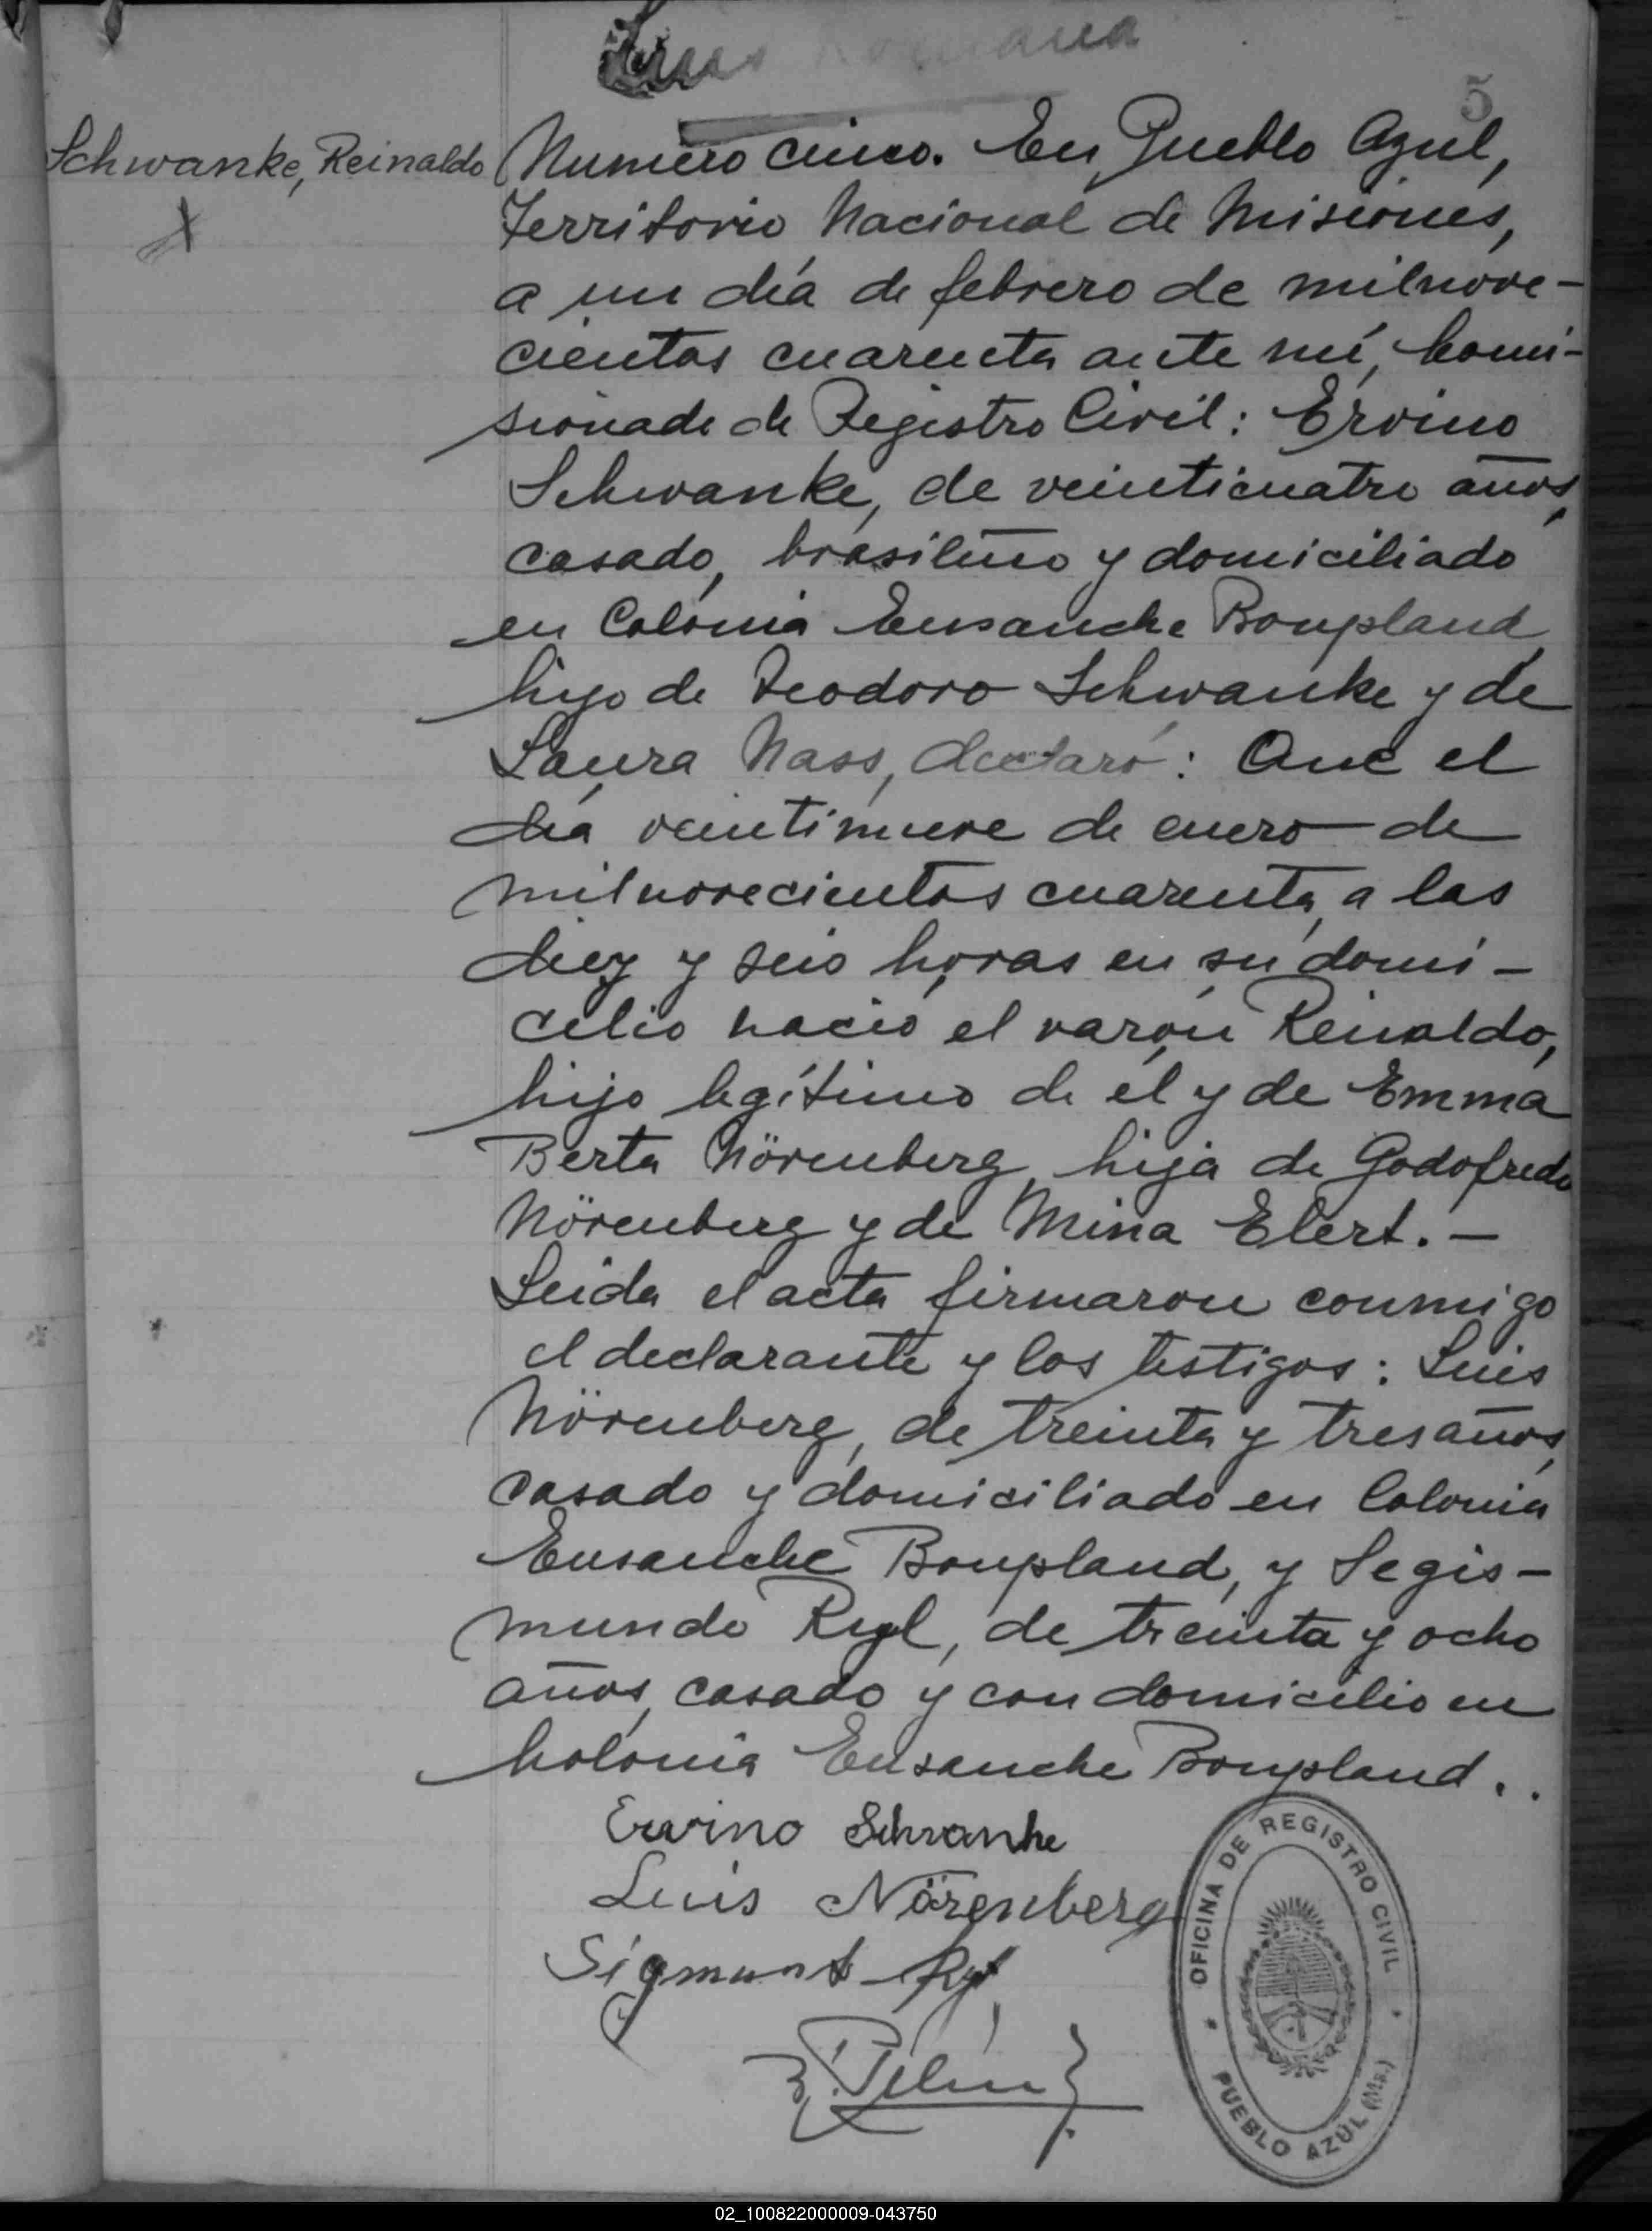 5
Schwanke, Reinaldo
Numero cinco. En Pueblo Azul,
Territorio Nacional de Misiones,
a un día de febrero de milnove-
cientos cuarenta ante mí, Comi-
sionado de Registro Civil: Ervino
Schwanke, de veinticuatro años,
casado, brasileño y domiciliado
en Colonia Ensanche Bonpland,
hijo de Teodoro Schwanke y de
Laura Nass, declaró: Que el
día veintinueve de enero de
milnovecientos cuarenta, a las
diez y seis horas en su domi-
cilio nació el varón Reinaldo,
hijo legítimo de él y de Emma
Berta Nörenberg, hija de Godofredo
Nörenberg y de Mina Elert. -
Leida el acta firmaron conmigo
el declarante y los testigos: Luis
Nörenberg, de treinta y tres años,
casado y domiciliado en Colonia
Ensanche Bonpland, y Segis-
mundo Ryl, de treinta y ocho
años, casado y con domicilio en
Colonia Ensanche Bonpland..
Ervino Schwanke
Luis Nörenberg
Sigmunt
OFICINA DE REGISTRO CIVIL
PUEBLO AZUL (Ms.)
02_100822000009-043750